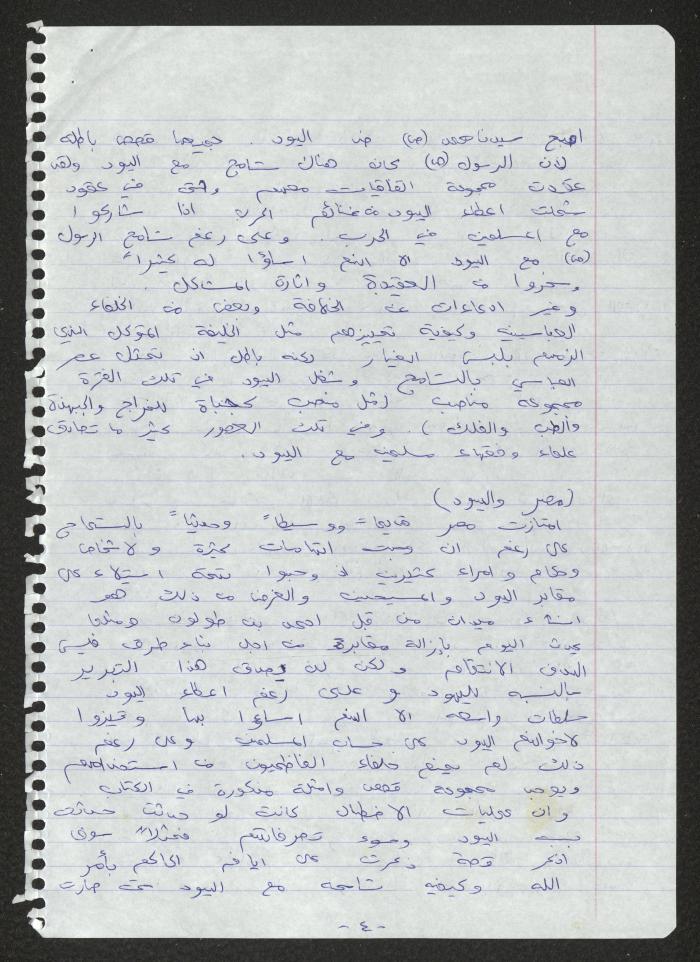 اصبح سيدنا محمد (ص) ضد اليود . جميعها قصص باطله
لأن الرسول (ص) كان هناك تسامح مع اليود ولقد
عقدت مجموعة اتفاقيات معهم وحتى في عقود
شملت اعطاء اليود من غنائم الحرب اذا شاركوا
مع المسلمين في الحرب . وعلى رغم تسامح الرسول
(ص) مع اليود الا انهم اساؤا له كثيراً
وسخروا من العقيدة واثارة المشاكل .
وغير ادعاءات عن الخلافة وبعض من الخلفاء
العباسيين وكيفية تمييزهم مثل الخليفة المتوكل الذي
الزمهم بلبس الغيار لكنه باطل اذ تمثل عصر
العباسي بالتسامح وشغل اليود في تلك الفترة
مجموعة مناصب (مثل منصب كجباة للخراج والجهبذة
والطب والفلك) . وفي تلك العصور كثير ما تصادق
علماء وفقهاء مسلمين مع اليود .
(مصر واليود)
امتازت مصر قديماً ووسيطاً وحديثاً بالتسامح
على رغم ان وجهت اتهامات كثيرة ولاشخاص
وحكام وامراء كثيرين اذ وجهوا نتيجة استيلاء على
مقابر اليود والمسيحيين والغرض من ذلك هو
انشاء ميدان من قبل احمد بن طولون ومثلما
يحدث اليوم بإزالة مقابر من اجل بناء طرق فليس
الهدف الانتقام ولكن لم يصدق هذا التبرير
بالنسبه لليهود وعلى رغم اعطاء اليود
سلطات واسعه الا انهم اساؤا بها وتحيزوا
لاخوانهم اليود على حساب المسلمين وعلى رغم
ذلك لم يمنع خلفاء الفاطميون من استخدامهم
ويوجد مجموعة قصص وامثلة مذكورة في الكتاب
وان عمليات الاضطهاد كانت لو حدثت حدثت
بسبب اليود وسوء تصرفاتهم فمثلاً سوف
اذكر قصة ذكرت على ايام الحاكم بأمر
الله وكيفيه تسامحه مع اليود حتى صارت
- ٤ -